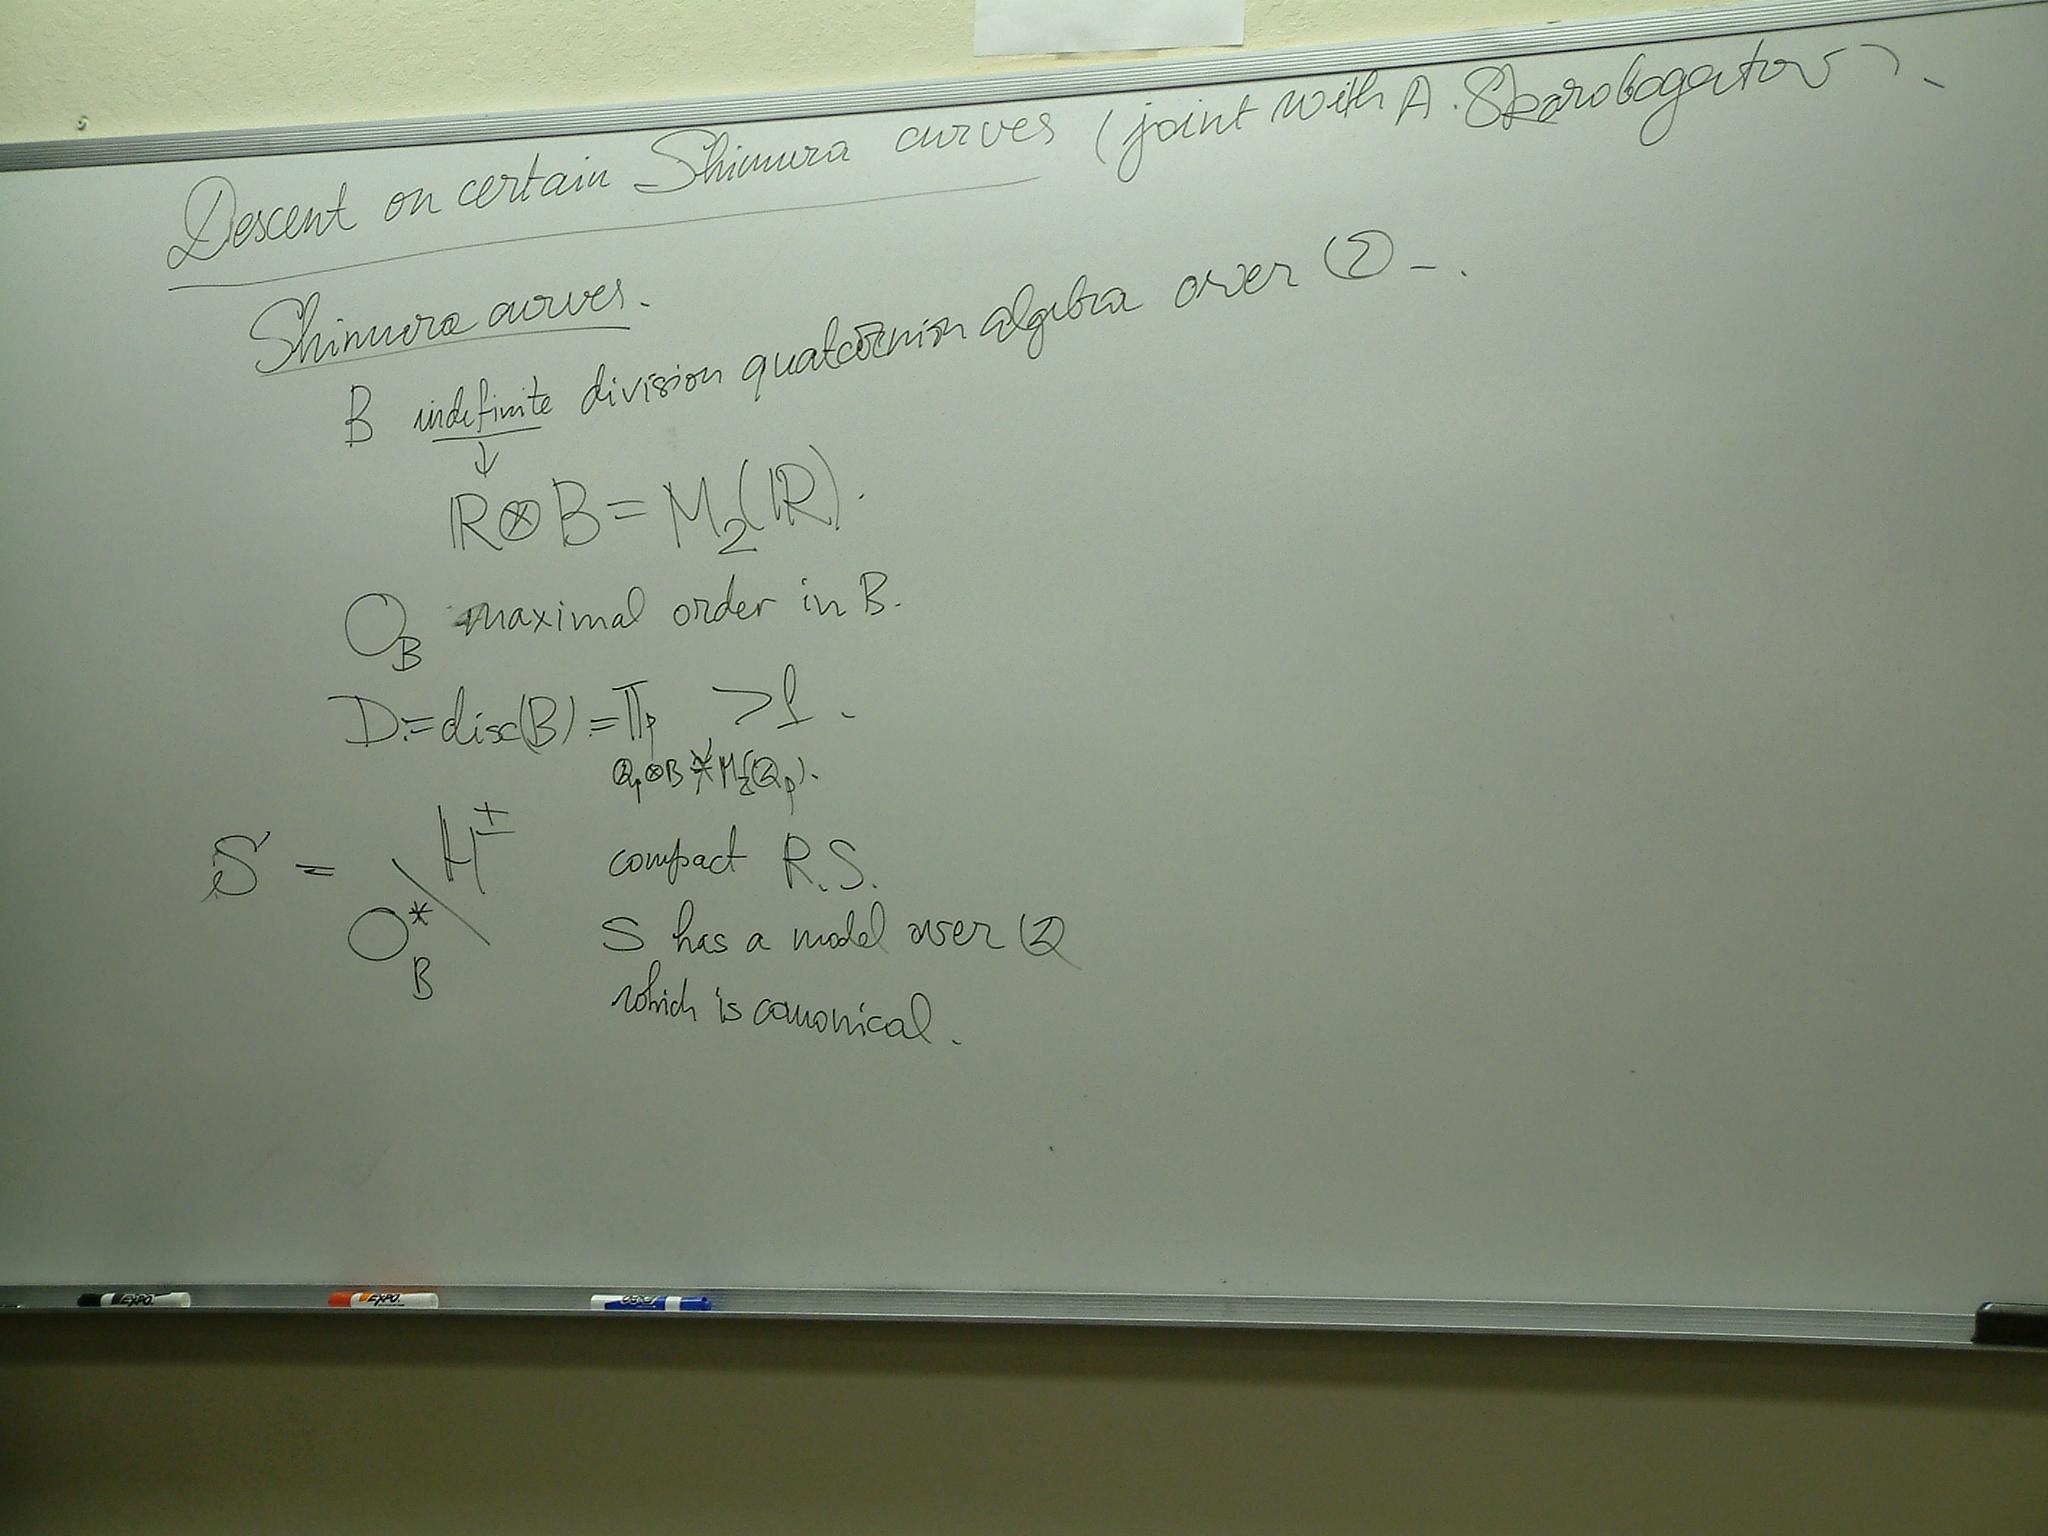 Descent on certain Shimura curves (joint with A. Skorobogatov).
Shimura curves.
B indefinite division quaternion algebra over ℚ.
↓
ℝ⊗B = M₂(ℝ).
O_B maximal order in B.
D := disc(B) = ∏p > 1.
ℚ_p⊗B ≄ M₂(ℚ_p).
S = O_B^* \ H^± compact R.S.
S has a model over ℚ
which is canonical.
EXPO. EXPO.